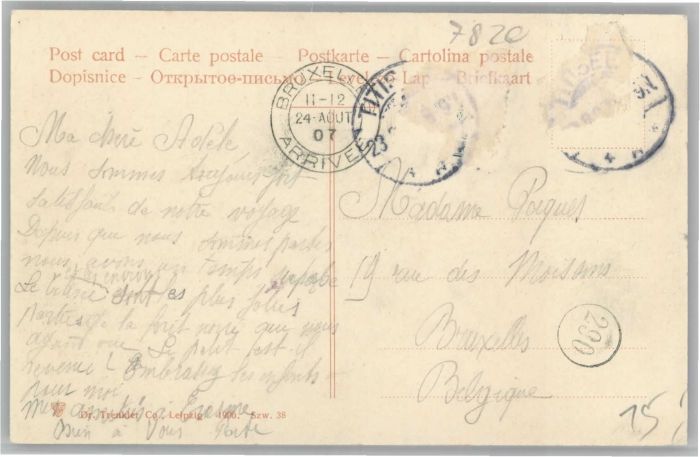 7820
Post card – Carte postale – Postkarte – Cartolina postale
Dopisnice – Открытое письмо – Levelező Lap – Briefkaart
BRUXELLES
11-12
24 AOUT
07
ARRIVÉE
TITIS
23
Ma chère Adèle
Nous sommes toujours
satisfaits de notre voyage
Depuis que nous sommes parties
nous avons un temps superbe
Le est plus jolies
parties de la forêt noire que nous
ayons vue. Le petit est-il
revenu? Embrassez les enfants
pour moi
Mes amitiés à
Bien à Vous
Madame Paques
19 rue des Moissons
Bruxelles
Belgique
290
15
Dr. Trenkler Co., Leipzig 1906. Szw. 38